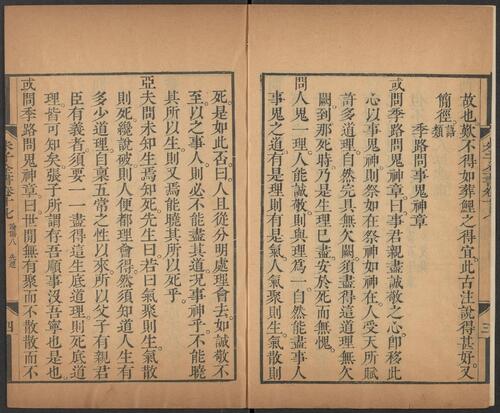 故也歎不得如葬鯉之得宜此古注說得甚好又
簡徑語類
季路問事鬼神章
或問季路問鬼神章曰事君親盡誠敬之心卽移此
心以事鬼神則祭如在祭神如神在人受天所賦
許多道理自然完具無欠闕須盡得這道理無欠
闕到那死時乃是生理已盡安於死而無愧
問人鬼一理人能誠敬則與理爲一自然能盡事人
事鬼之道有是理則有是氣人氣聚則生氣散則
死是如此否曰人且從分明處理會去如誠敬不
至以之事人則必不能盡其道況事神乎不能曉
其所以生則又焉能曉其所以死乎
亞夫問未知生焉知死先生曰若曰氣聚則生氣散
則死纔說破則人便都理會得然須知道人生有
多少道理自稟五常之性以來所以父子有親君
臣有義者須要一一盡得這生底道理則死底道
理皆可知矣張子所謂存吾順事沒吾寧也是也
或問季路問鬼神章曰世間無有聚而不散散而不
朱子全書卷十七 論語八 先進 四
三